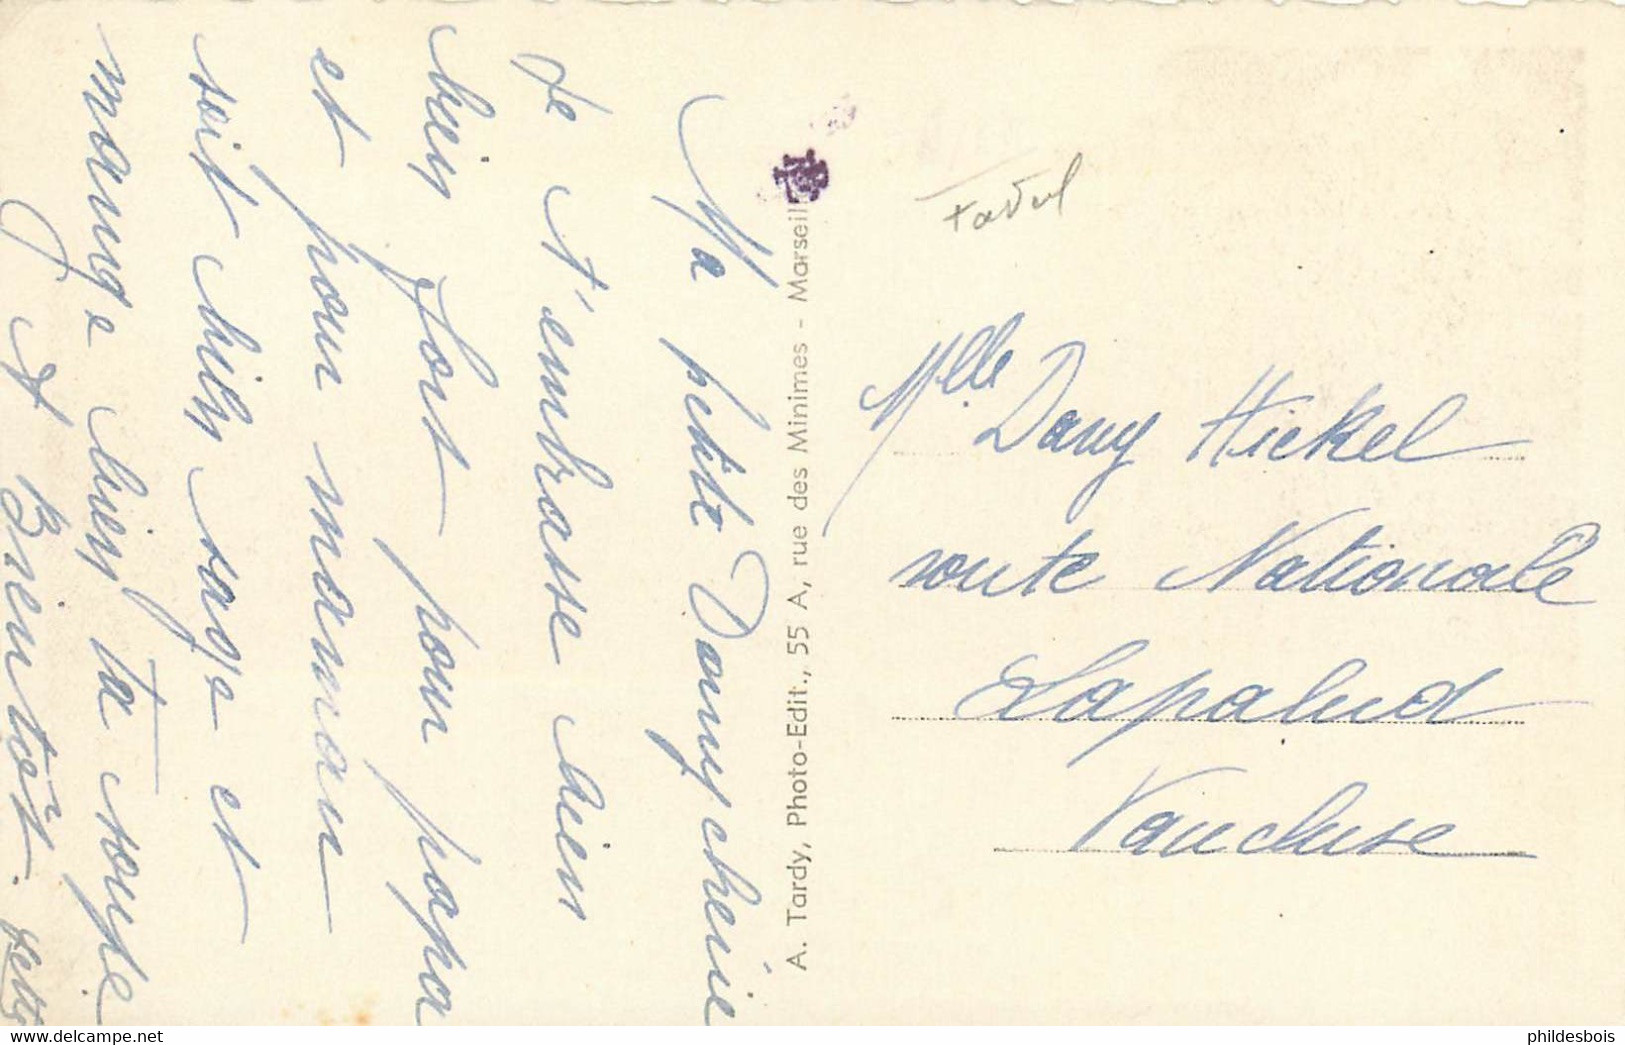 Ma petite Dany chérie
Je t'embrasse bien
bien fort pour papa
et pour maman
soit bien sage et
mange bien ta soupe
A Bientôt.
A. Tardy, Photo-Edit., 55 A, rue des Minimes - Marseill
Mlle Dany Hickel
route Nationale
Lapalud
Vaucluse
delcampe.net
phildesbois